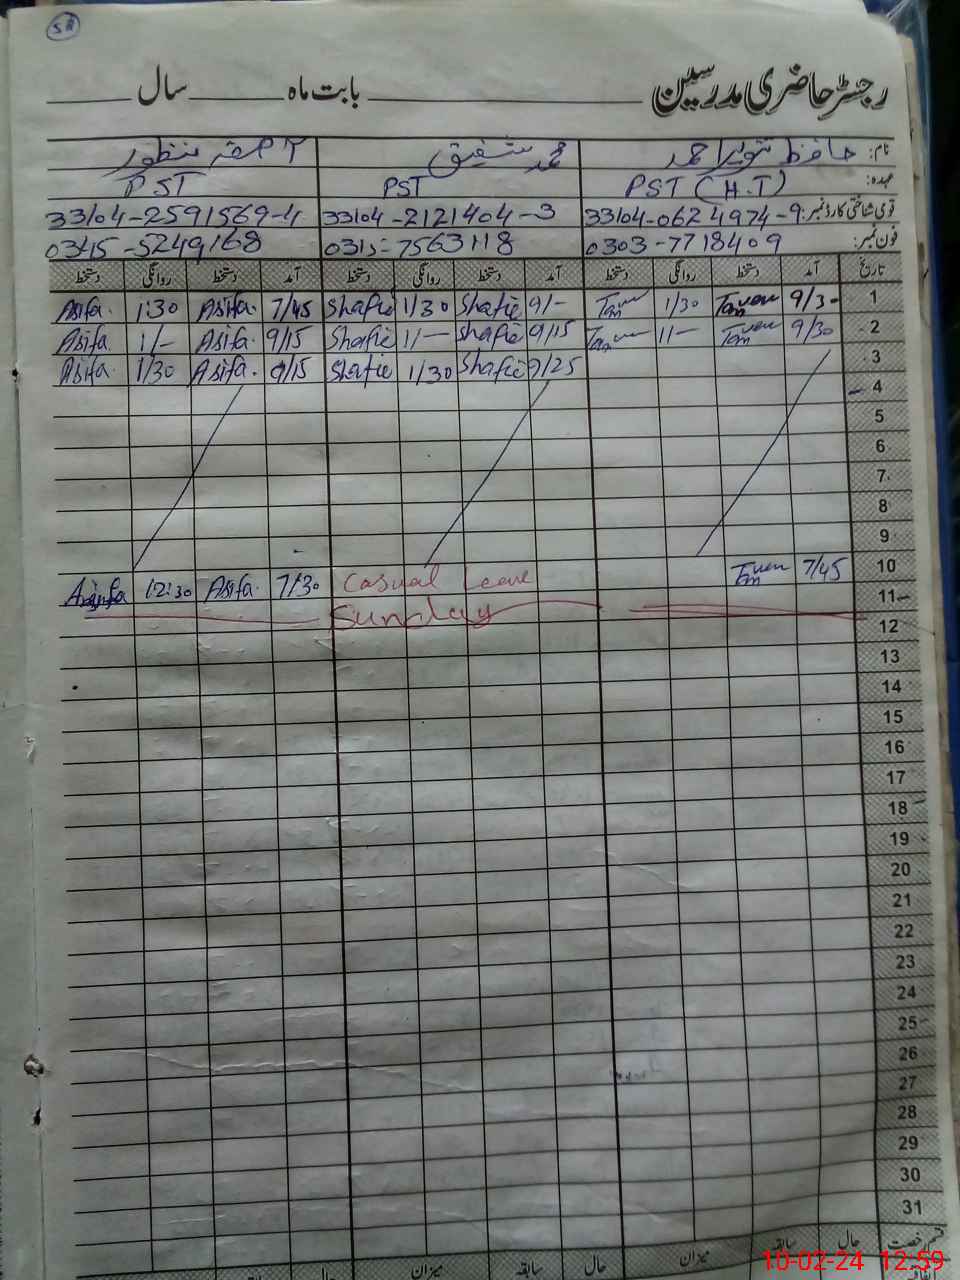 رجسٹر حاضری مدرسین بابت ماہ سال
نام: حافظ تنویر احمد محمد شفیق آصفہ منظور
عہدہ: PST (H.T) PST PST
قومی شناختی کارڈ نمبر: 33104-0624974-9 33104-2121404-3 33104-2591569-4
فون نمبر: 0303-7718409 7563118 0345-5249168
تاریخ آمد دستخط روانگی دستخط آمد دستخط روانگی دستخط آمد دستخط روانگی دستخط
1 9/30 Tanveer 1/30 Tanveer 9/- Shafie 1/30 Shafie 7/45 Asifa. 1:30 Asifa.
2 9/30 Tanveer 11- Tanveer 9/15 Shafie 11- Shafie 9/15 Asifa. 1/- Asifa.
3 9/25 Shafie 1/30 Shafie 9/15 Asifa. 1/30 Asifa.
4
5
6
7
8
9
10 7/45 Tanveer Casual Leave 7/30 Asifa. 12:30 Asifa
11 Sunday
12
13
14
15
16
17
18
19
20
21
22
23
24
25
26
27
28
29
30
31
قسم رخصت حال سابقہ میزان حال سابقہ میزان حال سابقہ
10-02-24 12:59